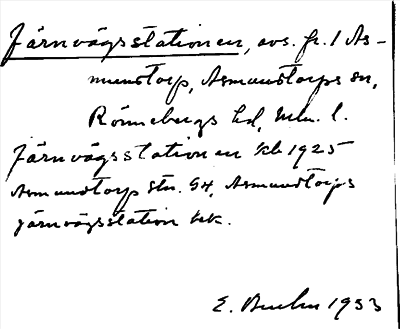 Järnvägsstationen, avs. fr. 1 As-
mundtorp, Asmundtorps sn,
Rönnebergs hd, Mlm. l.
Järnvägsstationen kb 1925
Asmundtorp stn. G4, Asmundtorps
järnvägsstation kk.
E. 1953